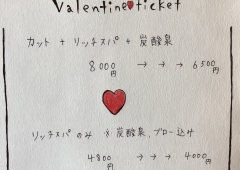 Valentine♥ticket
カット + リッチスパ + 炭酸泉
8000円 → → → 6500円
リッチスパのみ ※炭酸泉、ブロー込み
4800円 → → → 4000円